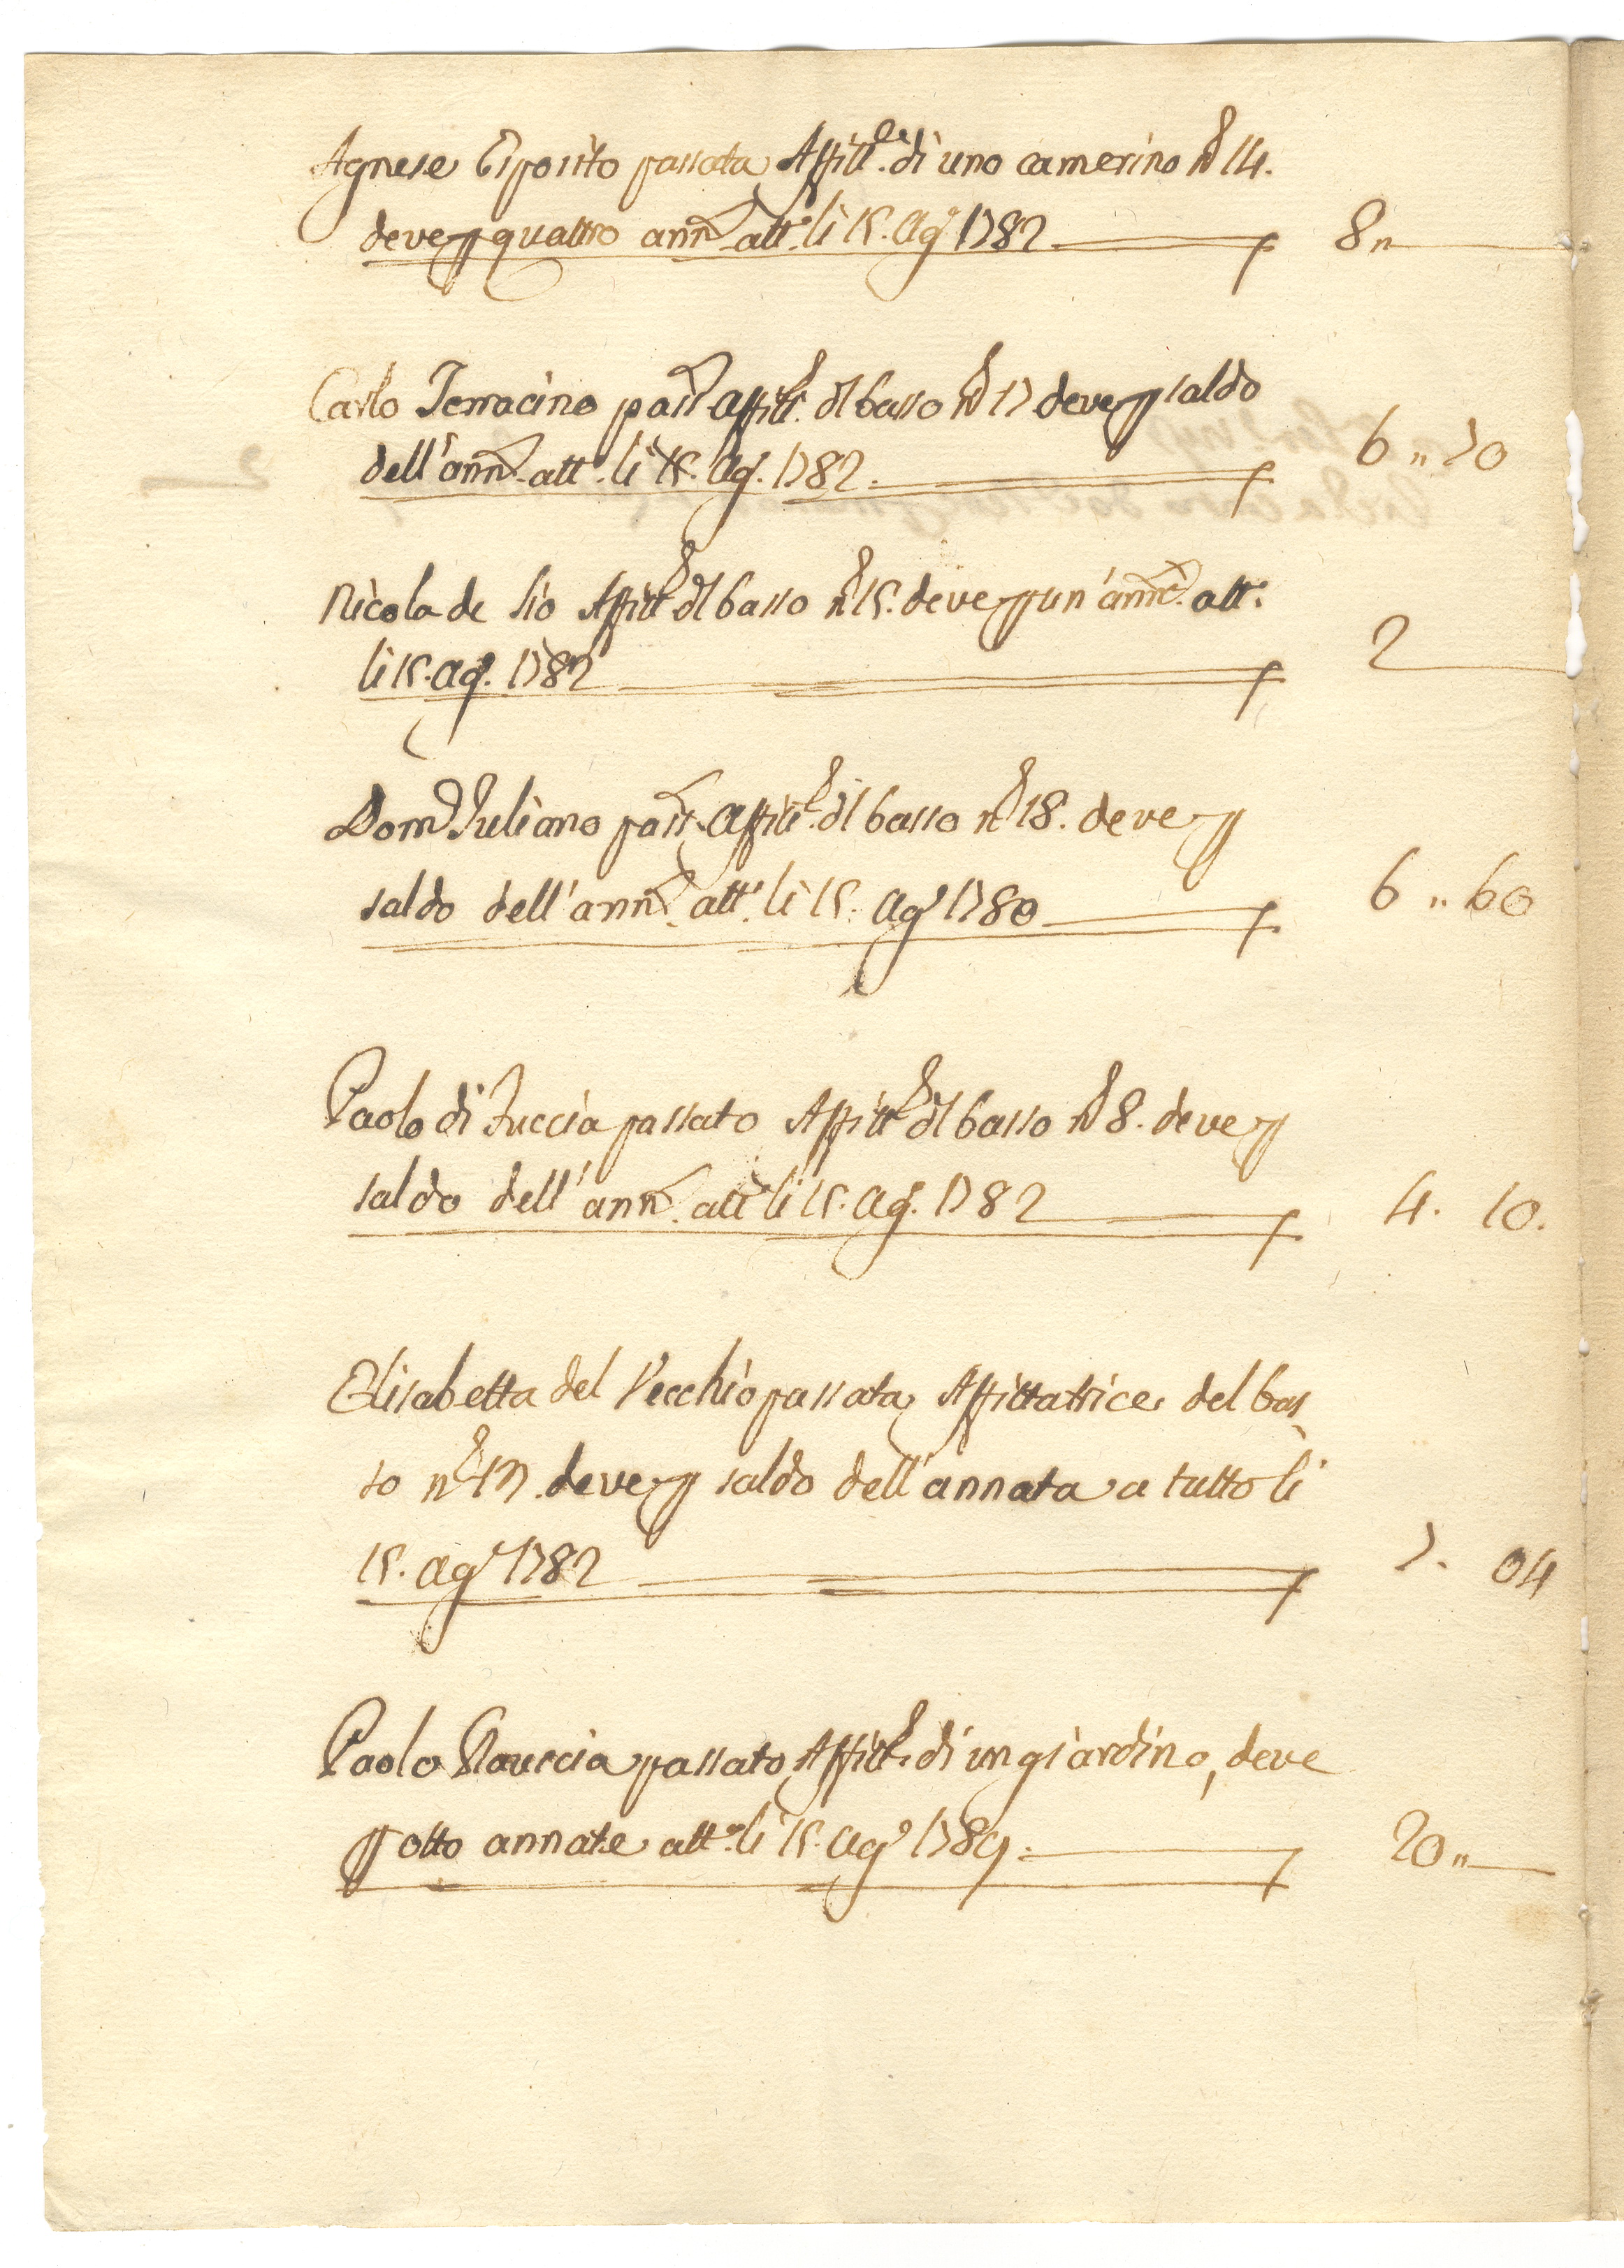 Agnese Esposito passata Affitt.ce di uno camerino n.o 14.
deve p quattro ann.e att.o li 15. Ag.o 1782 8"
Carlo Terracino pass.o Affitt.e d'l basso n.o 17 deve p saldo
dell'ann.a att.o li 15. Ag.o 1782. 6 " 70
Nicola de Sio Affitt.e d'l basso n.o 15. deve p un'ann.a att.o
li 15. Ag.o 1782 2
Dom.o Iuliano pass.o Affitt.e d'l basso n.o 18. deve p
saldo dell'ann.a att.o li 15. Ag.o 1780 6 " 60
Paolo di Tuccia passato Affitt.e d'l basso n.o 8. deve p
saldo dell'ann.a att.o li 15. Ag.o 1782 4. 10.
Elisabetta del Vecchio passata Affittatrice del bas
so n.o deve p saldo dell'annata a tutto li
15. Ag.o 1782 7. 04
Paolo passato Affitt.e di un giardino, deve
p otto annate att.o li 15. Ag.o 1789. 20"